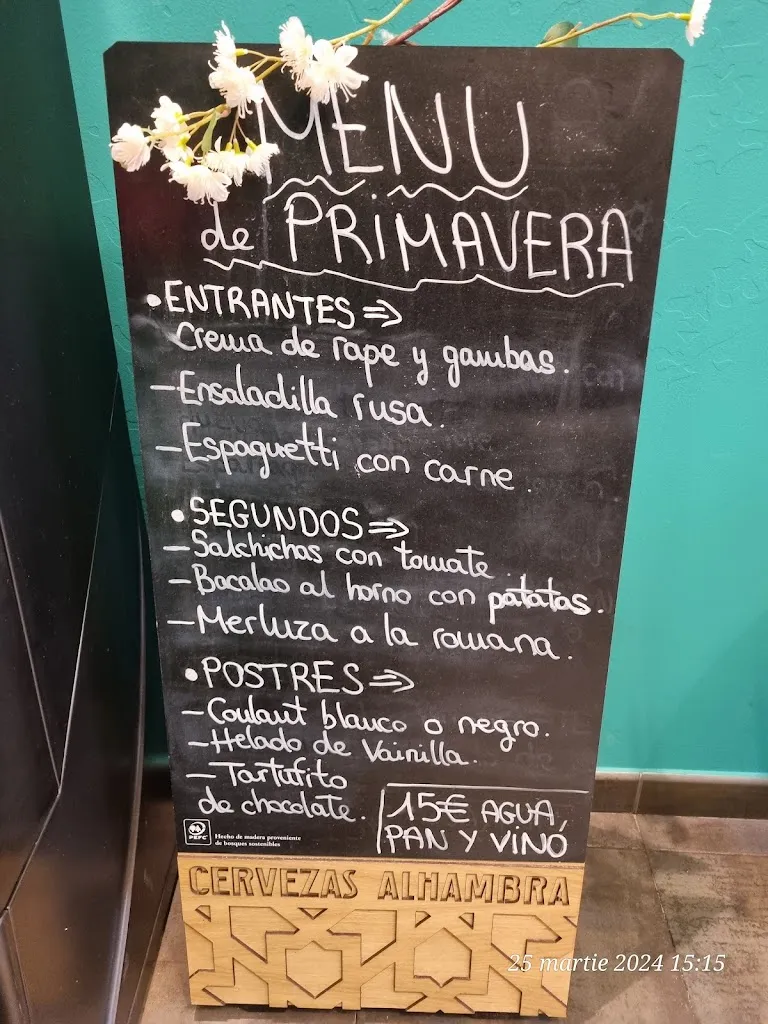 MENU
de PRiMAVERA
•ENTRANTES⇒
Crema de rape y gambas.
—Ensaladilla rusa.
—Espaguetti con carne.
•SEGUNDOS⇒
—Salchichas con tomate.
—Bacalao al horno con patatas.
—Merluza a la romana.
•POSTRES⇒
—Coulant blanco o negro.
—Helado de Vainilla.
—Tartufito
de chocolate.
15€ AGUA,
PAN Y VINO
PEFC
Hecho de madera proveniente
de bosques sostenibles
CERVEZAS ALHAMBRA
25 martie 2024 15:15